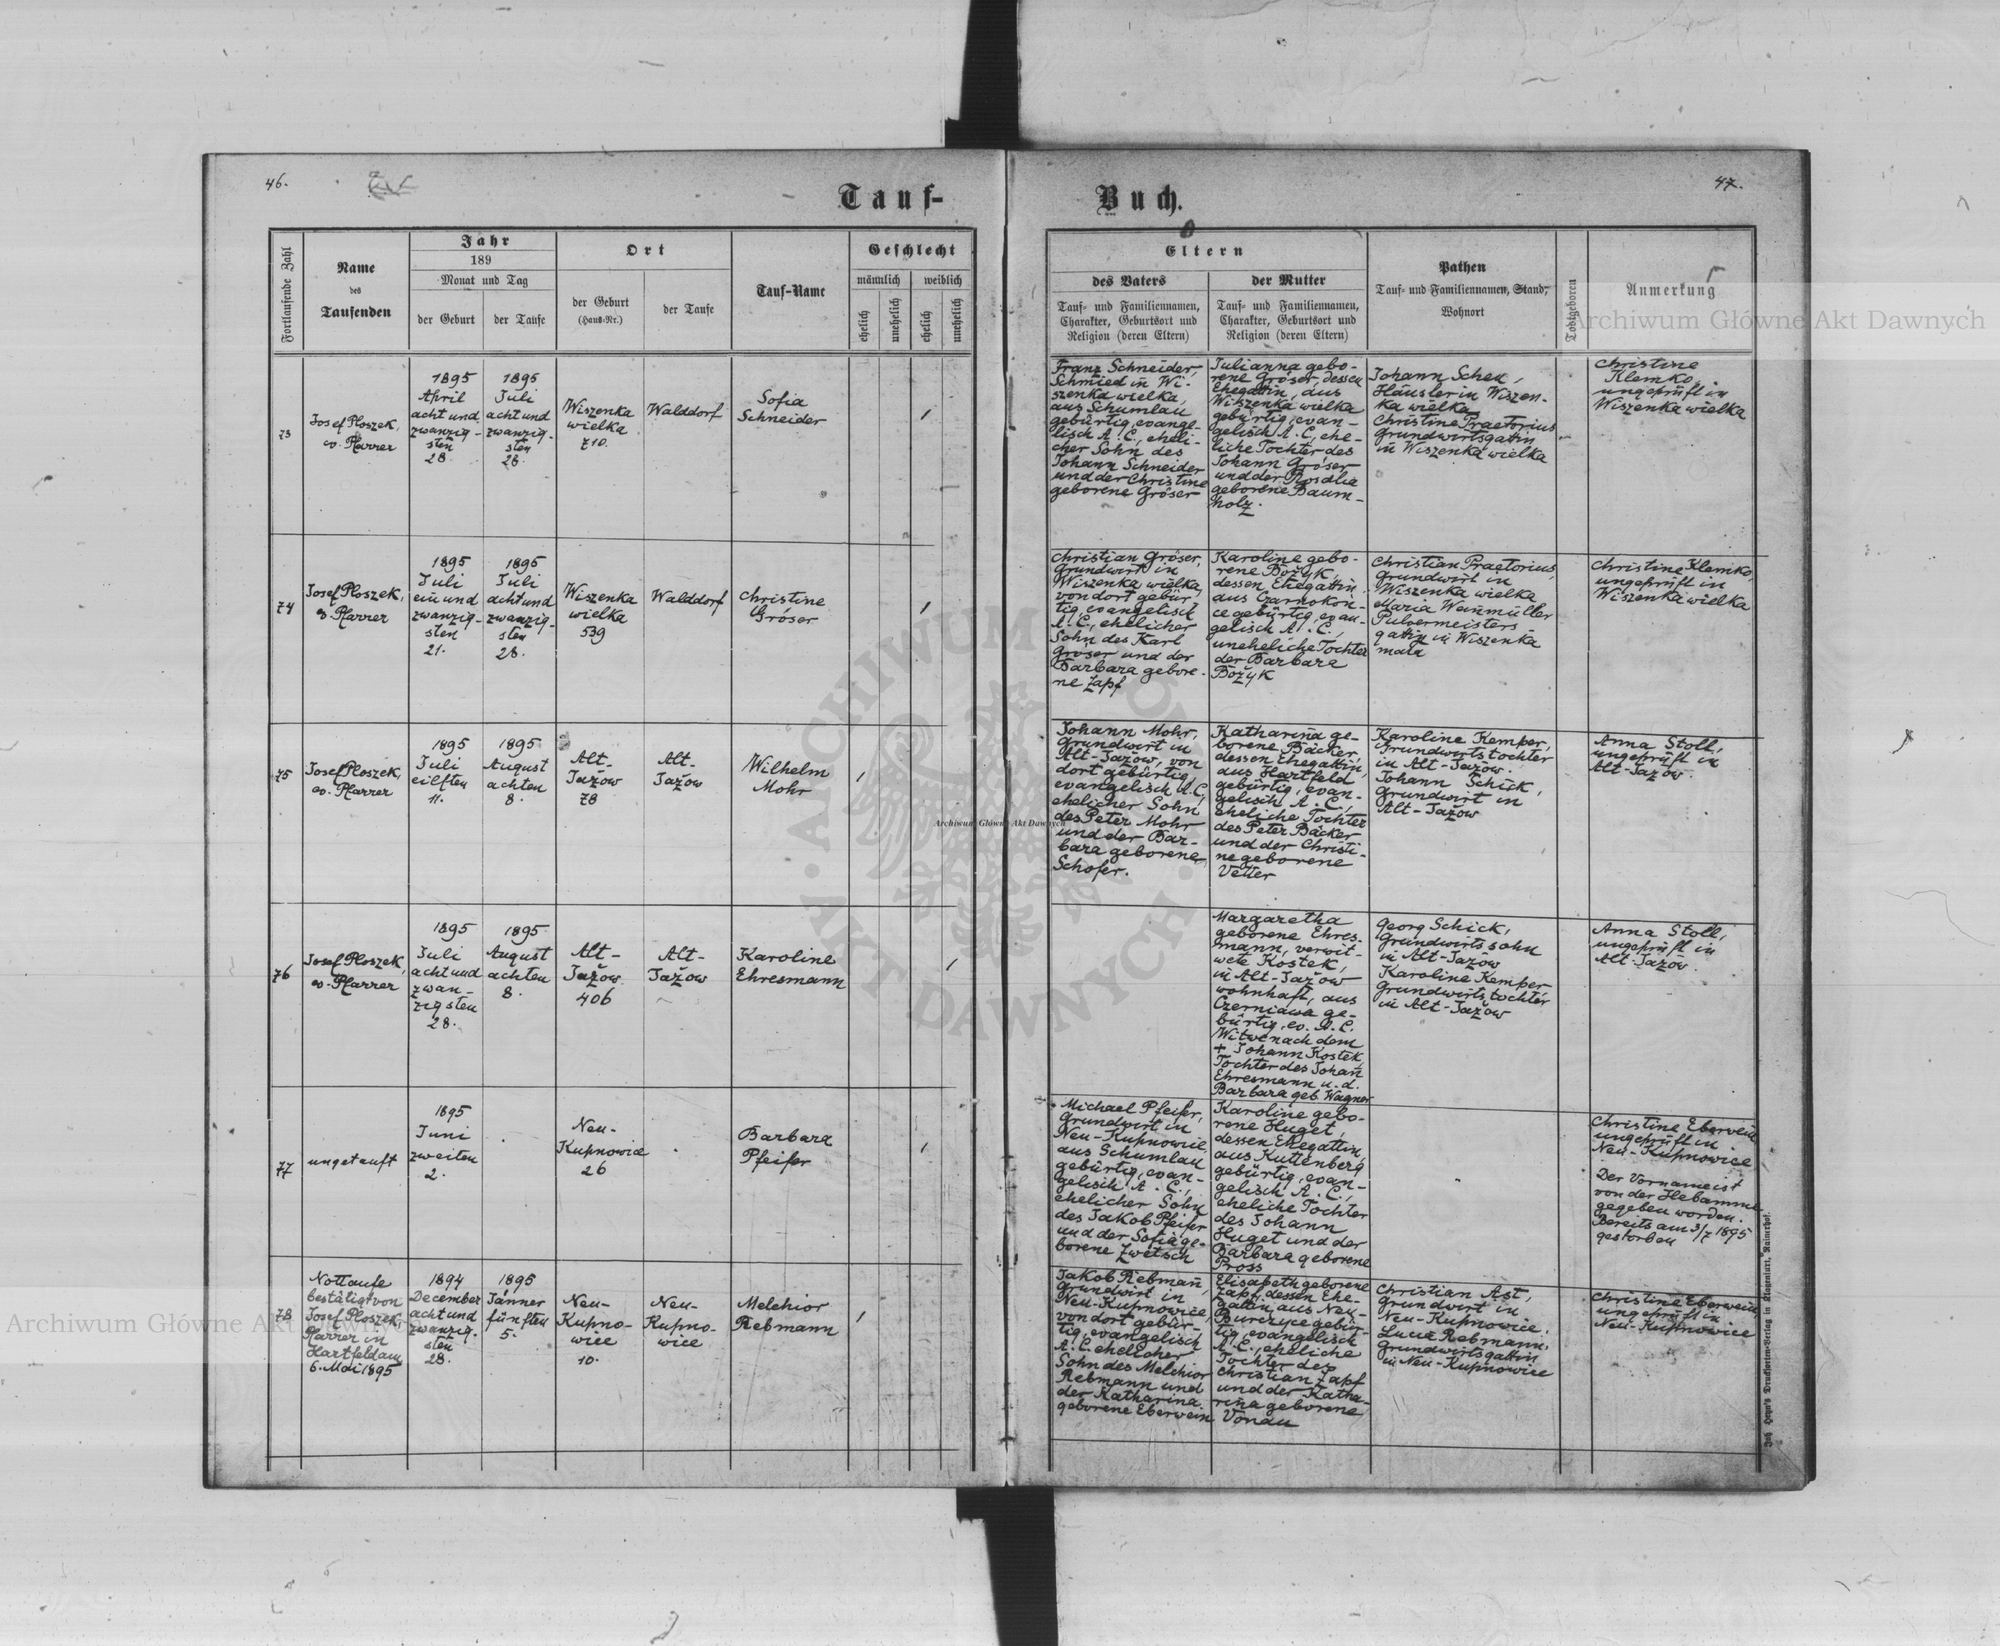 46.
Tauf-
Fortlaufende Zahl
Name
des
Taufenden
Jahr
189
Monat und Tag
der Geburt
der Taufe
Ort
der Geburt
(Haus-Nr.)
der Taufe
Tauf-Name
Geschlecht
männlich
weiblich
ehelich
unehelich
ehelich
unehelich
73
Josef Ploszek,
ev. Pfarrer
1895
April
acht und
zwanzig-
sten
28.
1895
Juli
acht und
zwanzig-
sten
28.
Wiszenka
wielka
710.
Walddorf
Sofia
Schneider
1
74
Josef Ploszek,
ev. Pfarrer
1895
Juli
ein und
zwanzig-
sten
21.
1895
Juli
acht und
zwanzig-
sten
28.
Wiszenka
wielka
539
Walddorf
Christine
Gröser
1
75
Josef Ploszek,
ev. Pfarrer
1895
Juli
eilften
11.
1895
August
achten
8.
Alt-
Jažow
78
Alt-
Jažow
Wilhelm
Mohr
1
76
Josef Ploszek,
ev. Pfarrer
1895
Juli
acht und
zwan-
zigsten
28.
1895
August
achten
8.
Alt-
Jažow
406
Alt-
Jažow
Karoline
Ehresmann
1
77
ungetauft
1895
Juni
zweiten
2.
Neu-
Kupnowice
26
Barbara
Pfeifer
1
78
Nottaufe
bestätigt von
Josef Ploszek,
Pfarrer in
Hartfeld am
6. Mai 1895
1894
December
acht und
zwanzig-
sten
28.
1895
Jänner
fünften
5.
Neu-
Kupno-
wice
10.
Neu-
Kupno-
wice
Melchior
Rebmann
1
47.
Buch.
Eltern
des Vaters
Tauf- und Familiennamen,
Charakter, Geburtsort und
Religion (deren Eltern)
der Mutter
Tauf- und Familiennamen,
Charakter, Geburtsort und
Religion (deren Eltern)
Pathen
Tauf- und Familiennamen, Stand,
Wohnort
Todtgeboren
Anmerkung
Franz Schneider,
Schmied in Wi-
szenka wielka,
aus Schumlau
gebürtig, evange-
lisch A. C., eheli-
cher Sohn des
Johann Schneider
und der Christine
geborene Gröser
Julianna gebo-
rene Gröser, dessen
Ehegattin, aus
Wiszenka wielka
gebürtig, evan-
gelisch A. C., ehe-
liche Tochter des
Johann Gröser
und der Rosalia
geborene Baum-
holz.
Johann Schek,
Häusler in Wiszen-
ka wielka
Christine Praetorius
Grundwirtsgattin
in Wiszenka wielka
Christine
Klemko
ungeprüft in
Wiszenka wielka
Christian Gröser,
Grundwirt in
Wiszenka wielka,
von dort gebür-
tig, evangelisch
A. C., ehelicher
Sohn des Karl
Gröser und der
Barbara gebore-
ne Zapf
Karoline gebo-
rene Božyk,
dessen Ehegattin
aus Czarnokon-
ce gebürtig, evan-
gelisch A. C.,
uneheliche Tochter
der Barbara
Božyk
Christian Praetorius,
Grundwirt in
Wiszenka wielka
Maria Weinmüller
Pulvermeisters-
gattin in Wiszenka
mala
Christine Klemko,
ungeprüft in
Wiszenka wielka
Johann Mohr,
Grundwirt in
Alt-Jažow, von
dort gebürtig,
evangelisch A. C.,
ehelicher Sohn
des Peter Mohr
und der Bar-
bara geborene
Schofer.
Katharina ge-
borene Bäcker,
dessen Ehegattin,
aus Hartfeld
gebürtig, evan-
gelisch A. C.,
eheliche Tochter
des Peter Bäcker
und der Christi-
ne geborene
Vetter
Karoline Kemper,
Grundwirtstochter
in Alt-Jažow.
Johann Schick,
Grundwirt in
Alt-Jažow
Anna Stoll,
ungeprüft in
Alt-Jažow.
Margaretha
geborene Ehres-
mann, verwit-
wete Kostek,
in Alt-Jažow
wohnhaft, aus
Czerniawa ge-
bürtig, ev. A. C.
Witwe nach dem
+ Johann Kostek,
Tochter des Johann
Ehresmann u. d.
Barbara geb. Wagner
Georg Schick,
Grundwirtssohn
in Alt-Jažow
Karoline Kemper
Grundwirtstochter
in Alt-Jažow
Anna Stoll,
ungeprüft in
Alt-Jažow.
Michael Pfeifer,
Grundwirt in
Neu-Kupnowice,
aus Schumlau
gebürtig, evan-
gelisch A. C.,
ehelicher Sohn
des Jakob Pfeifer
und der Sofia ge-
borene Zwetsch
Karoline gebo-
rene Huget,
dessen Ehegattin,
aus Kuttenberg
gebürtig, evan-
gelisch A. C.,
eheliche Tochter
des Johann
Huget und der
Barbara geborene
Pross
Christine Eberwein
ungeprüft in
Neu-Kupnowice
Der Vorname ist
von der Hebamme
gegeben worden.
Bereits am 3/7 1895
gestorben
Jakob Rebmann,
Grundwirt in
Neu-Kupnowice,
von dort gebür-
tig, evangelisch
A. C. ehelicher
Sohn des Melchior
Rebmann und
der Katharina
geborene Eberwein
Elisabeth geborene
Zapf, dessen Ehe-
gattin, aus Neu-
Burczyce gebür-
tig, evangelisch
A. C., eheliche
Tochter des
Christian Zapf
und der Katha-
rina geborene
Vonau
Christian Ast,
Grundwirt in
Neu-Kupnowice.
Lucie Rebmann,
Grundwirtsgattin
in Neu-Kupnowice
Christine Eberwein,
ungeprüft in
Neu-Kupnowice
Joh. Heyn's Drucksorten-Verlag in Klagenfurt, Rainerhof.
Archiwum Główne Akt Dawnych
Archiwum Główne Akt Dawnych
Archiwum Główne Akt Dawnych
ARCHIWUM GŁÓWNE AKT DAWNYCH